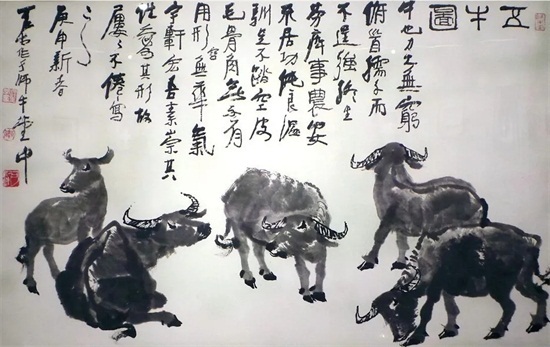 五牛圖
牛也力大無窮
俯首孺子而
不逞強終生
勞瘁事農安
不居功純良温
馴足不踏空皮
毛骨角無不有
用形容無華氣
宇軒宏吾素崇其
性愛其形故
屢〻不倦寫
之
庚申新春
可染作于師牛堂中